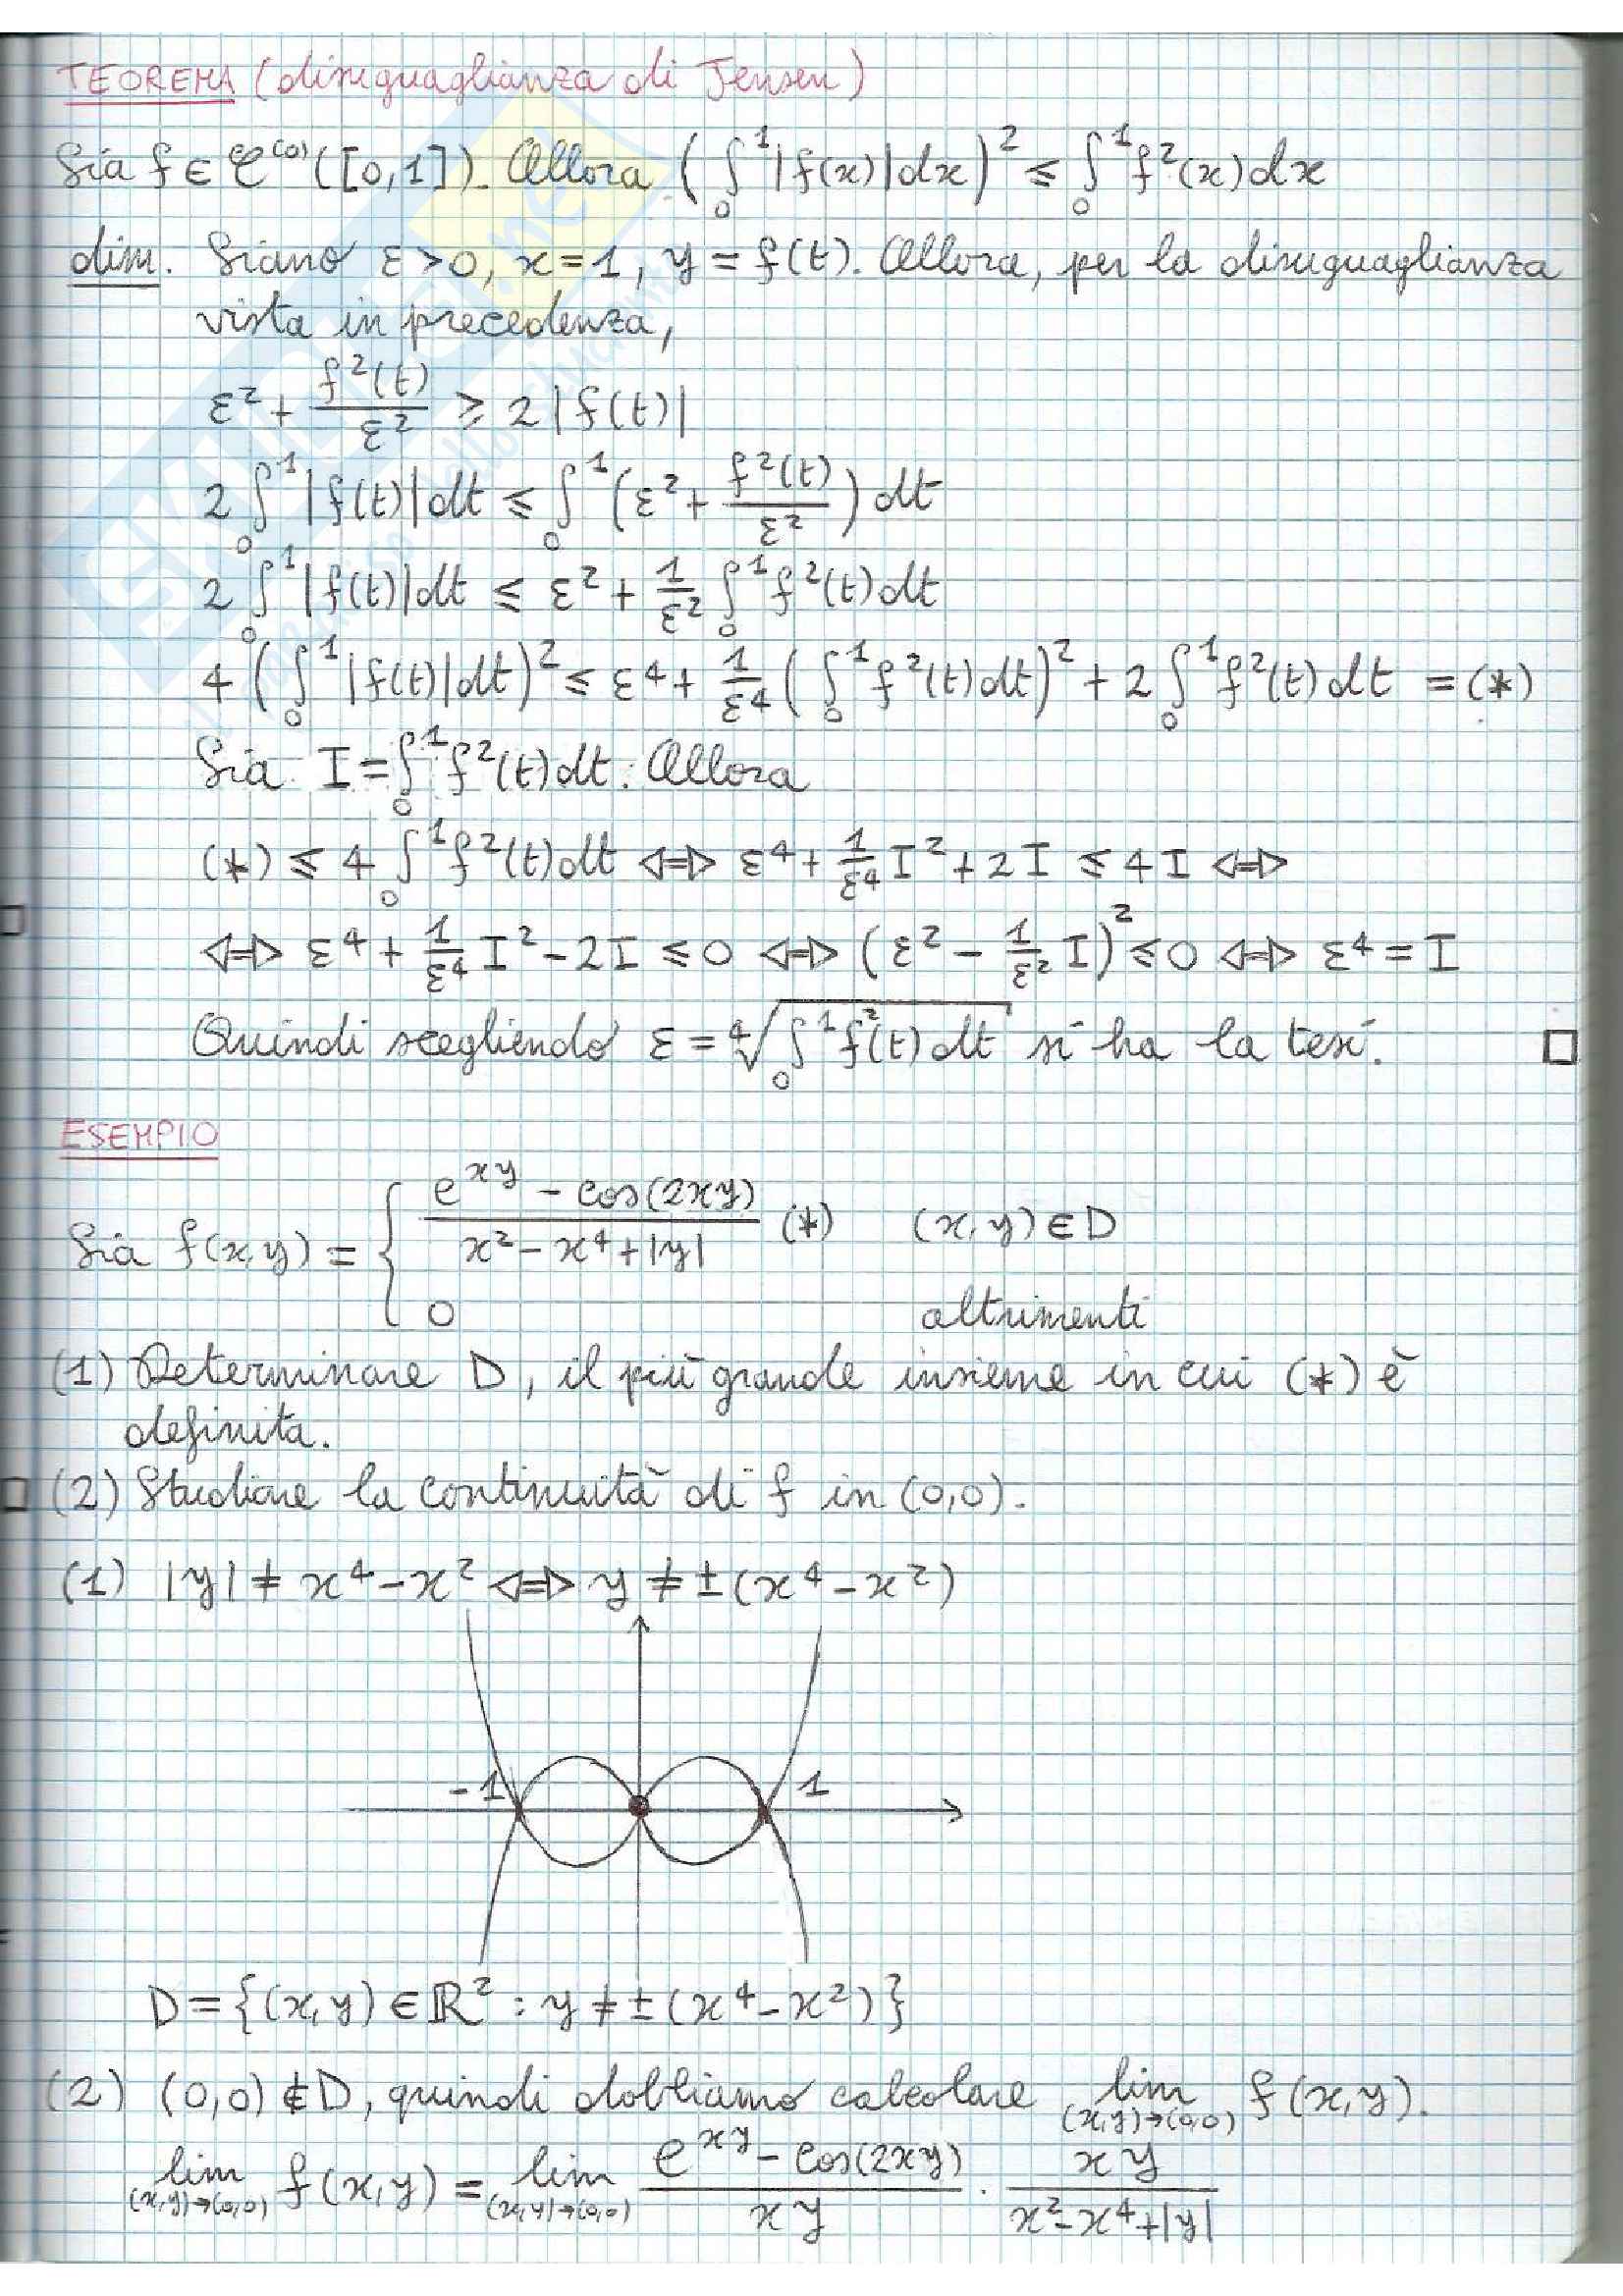 TEOREMA (disuguaglianza di Jensen)
Sia f ∈ C^(0)([0,1]). Allora (∫₀¹|f(x)|dx)² ≤ ∫₀¹f²(x)dx
dim. Siano ε>0, x=1, y=f(t). Allora, per la disuguaglianza
vista in precedenza,
ε² + f²(t)/ε² ≥ 2|f(t)|
2∫₀¹|f(t)|dt ≤ ∫₀¹(ε² + f²(t)/ε²)dt
2∫₀¹|f(t)|dt ≤ ε² + 1/ε² ∫₀¹f²(t)dt
4(∫₀¹|f(t)|dt)² ≤ ε⁴ + 1/ε⁴ (∫₀¹f²(t)dt)² + 2∫₀¹f²(t)dt = (*)
Sia I = ∫₀¹f²(t)dt. Allora
(*) ≤ 4∫₀¹f²(t)dt ⇔ ε⁴ + 1/ε⁴ I² + 2I ≤ 4I ⇔
⇔ ε⁴ + 1/ε⁴ I² − 2I ≤ 0 ⇔ (ε² − 1/ε² I)² ≤ 0 ⇔ ε⁴ = I
Quindi scegliendo ε = ⁴√(∫₀¹f²(t)dt) si ha la tesi. □
ESEMPIO
Sia f(x,y) = { (e^(xy) − cos(2xy))/(x² − x⁴ + |y|) (*) (x,y) ∈ D
0 altrimenti
(1) Determinare D, il più grande insieme in cui (*) è
definita.
(2) Studiare la continuità di f in (0,0).
(1) |y| ≠ x⁴ − x² ⇔ y ≠ ±(x⁴ − x²)
-1 1
D = {(x,y) ∈ ℝ² : y ≠ ±(x⁴ − x²)}
(2) (0,0) ∉ D, quindi dobbiamo calcolare lim (x,y)→(0,0) f(x,y).
lim (x,y)→(0,0) f(x,y) = lim (x,y)→(0,0) (e^(xy) − cos(2xy))/(xy) · xy/(x² − x⁴ + |y|)